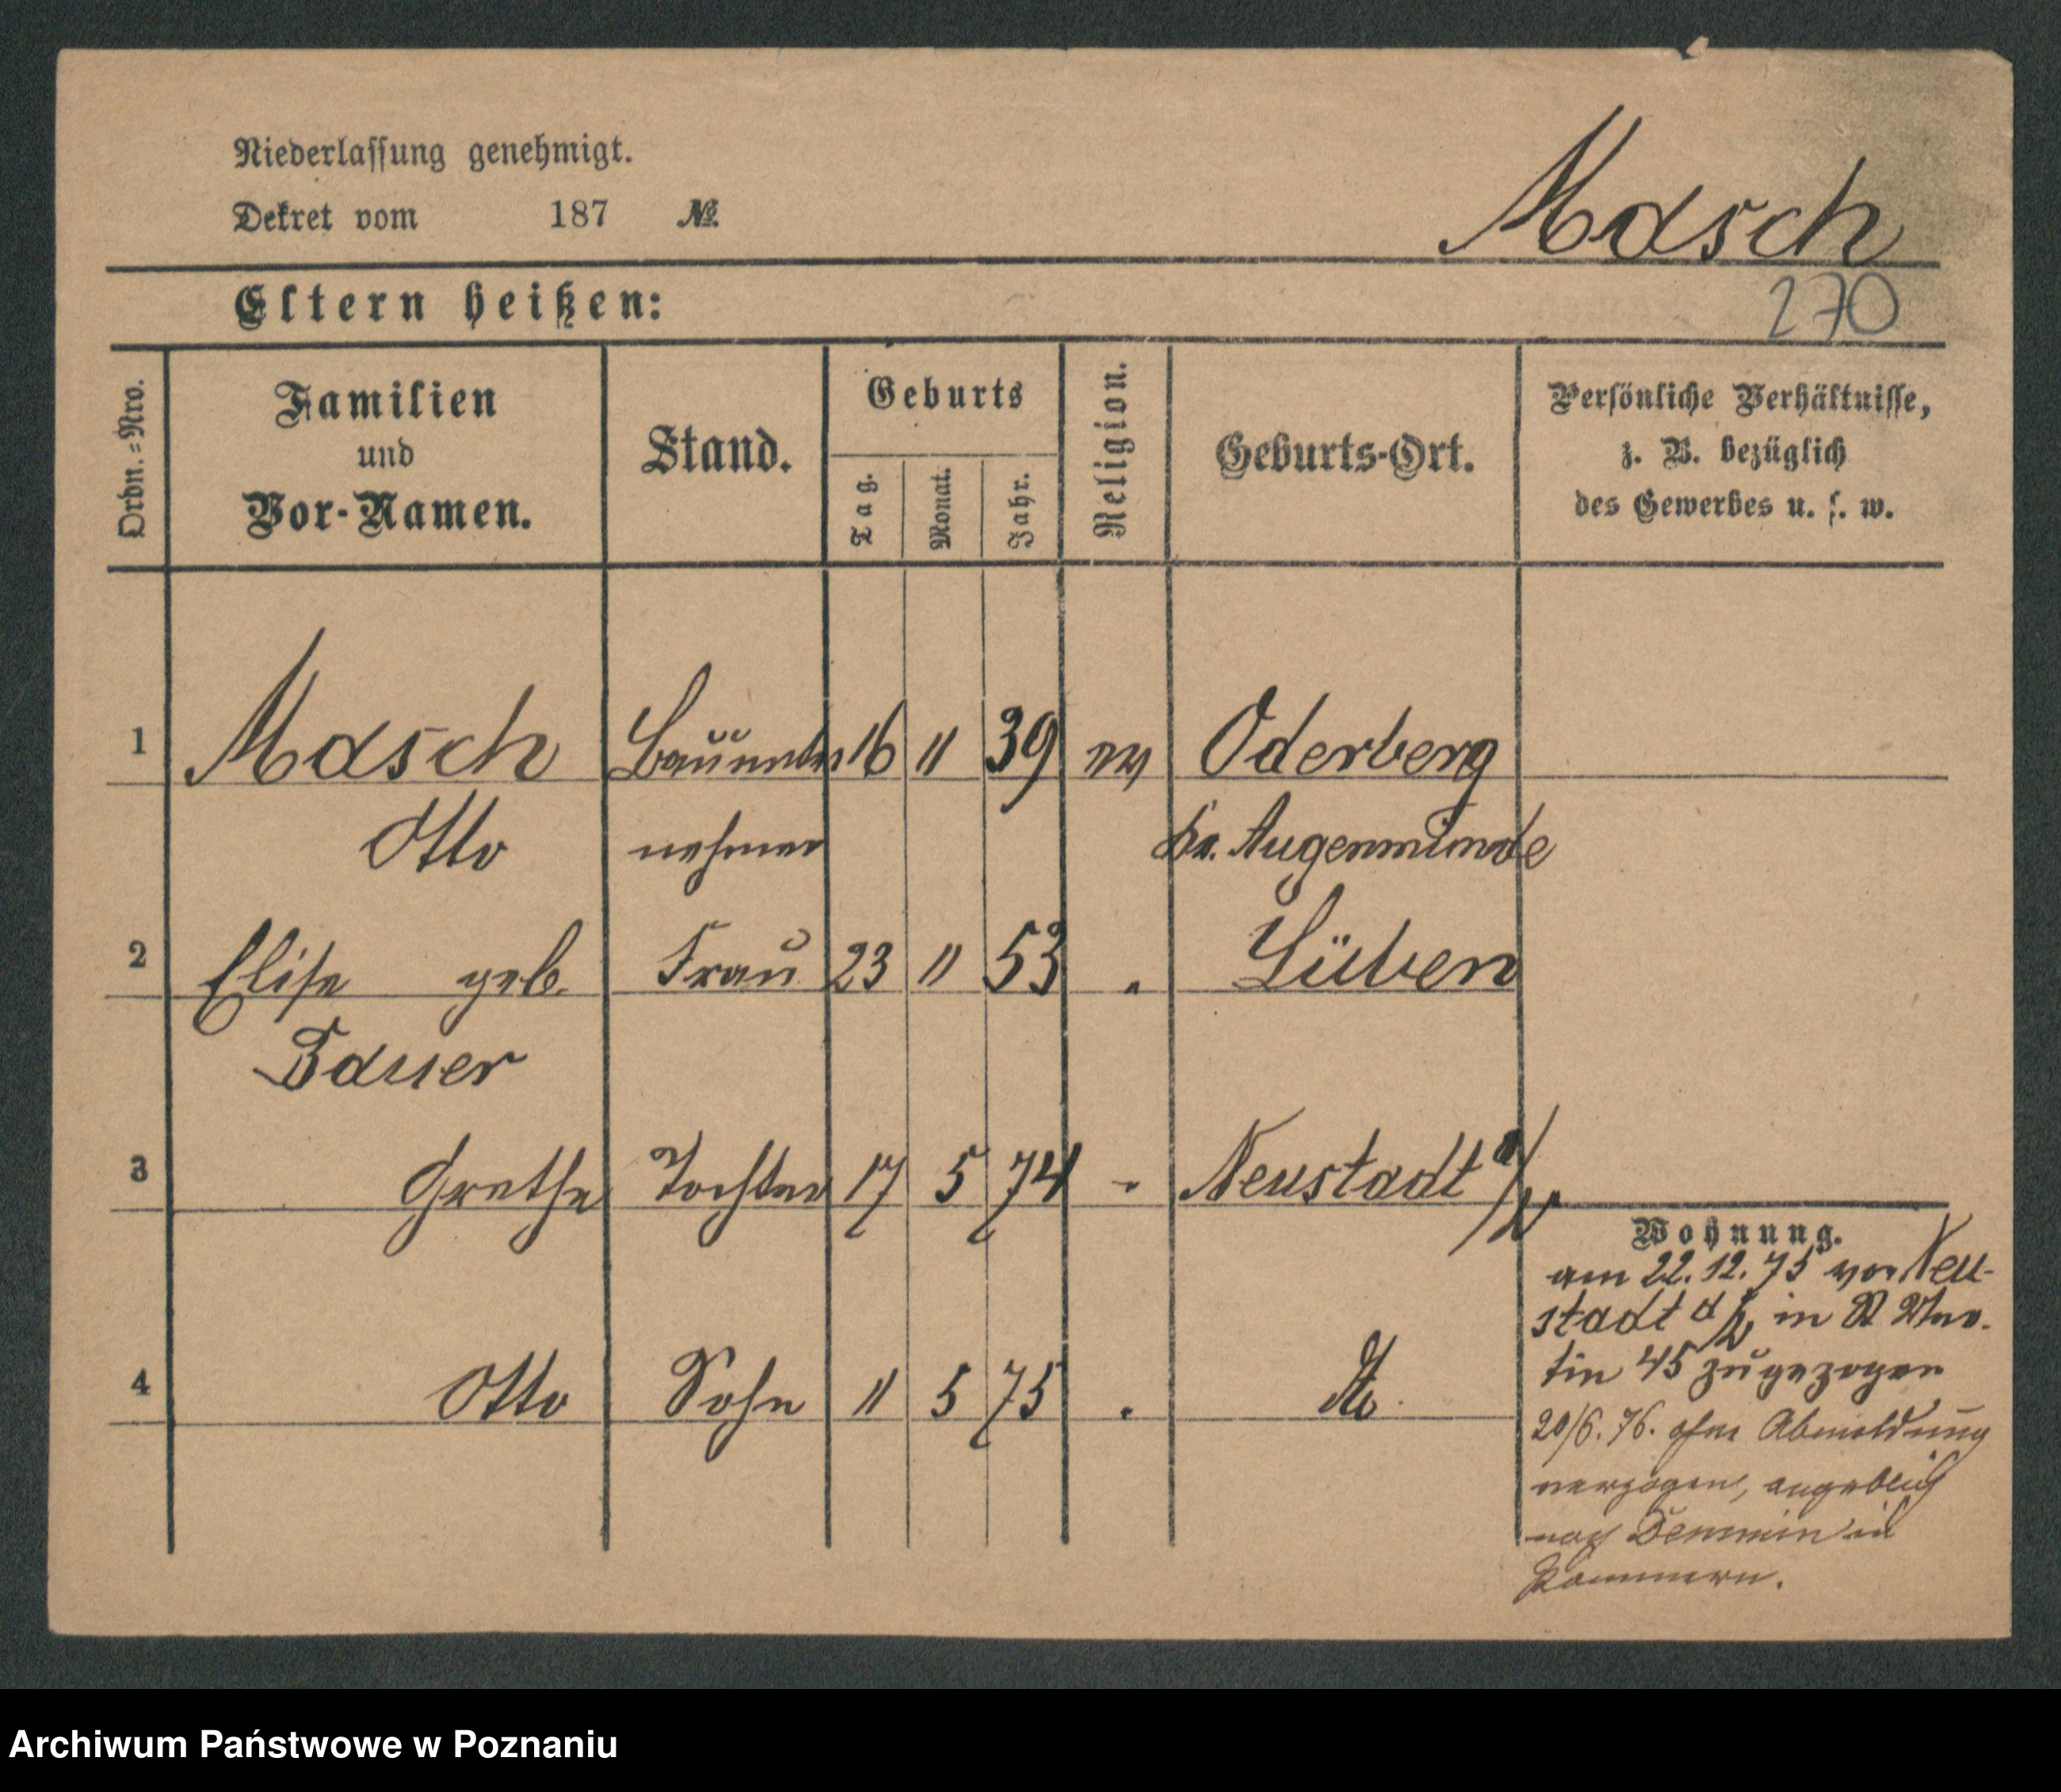 Niederlassung genehmigt.
Dekret vom 187 №
Masch
Eltern heißen:
270
Ordn.=Nro.
Familien
und
Vor-Namen.
Stand.
Geburts
Tag.
Monat.
Jahr.
Religion.
Geburts-Ort.
Persönliche Verhältnisse,
z. B. bezüglich
des Gewerbes u. s. w.
1 Masch Bauunter 16 11 39 ev Oderberg
Otto nehmer Kr. Augenmünde
2 Elise geb. Frau 23 11 53 " Lüben
Bauer
3 Grethe Tochter 17 5 74 " Neustadt a/W
4 Otto Sohn 11 5 75 " do.
Wohnung.
am 22.12.75 von Neu-
stadt a/W in St Mar-
tin 45 zugezogen
20/6.76. ohne Abmeldung
verzogen, angeblich
nach Demmin in
Pommern.
Archiwum Państwowe w Poznaniu